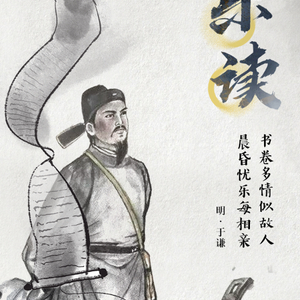 乐读
书卷多情似故人
晨昏忧乐每相亲
明·于谦